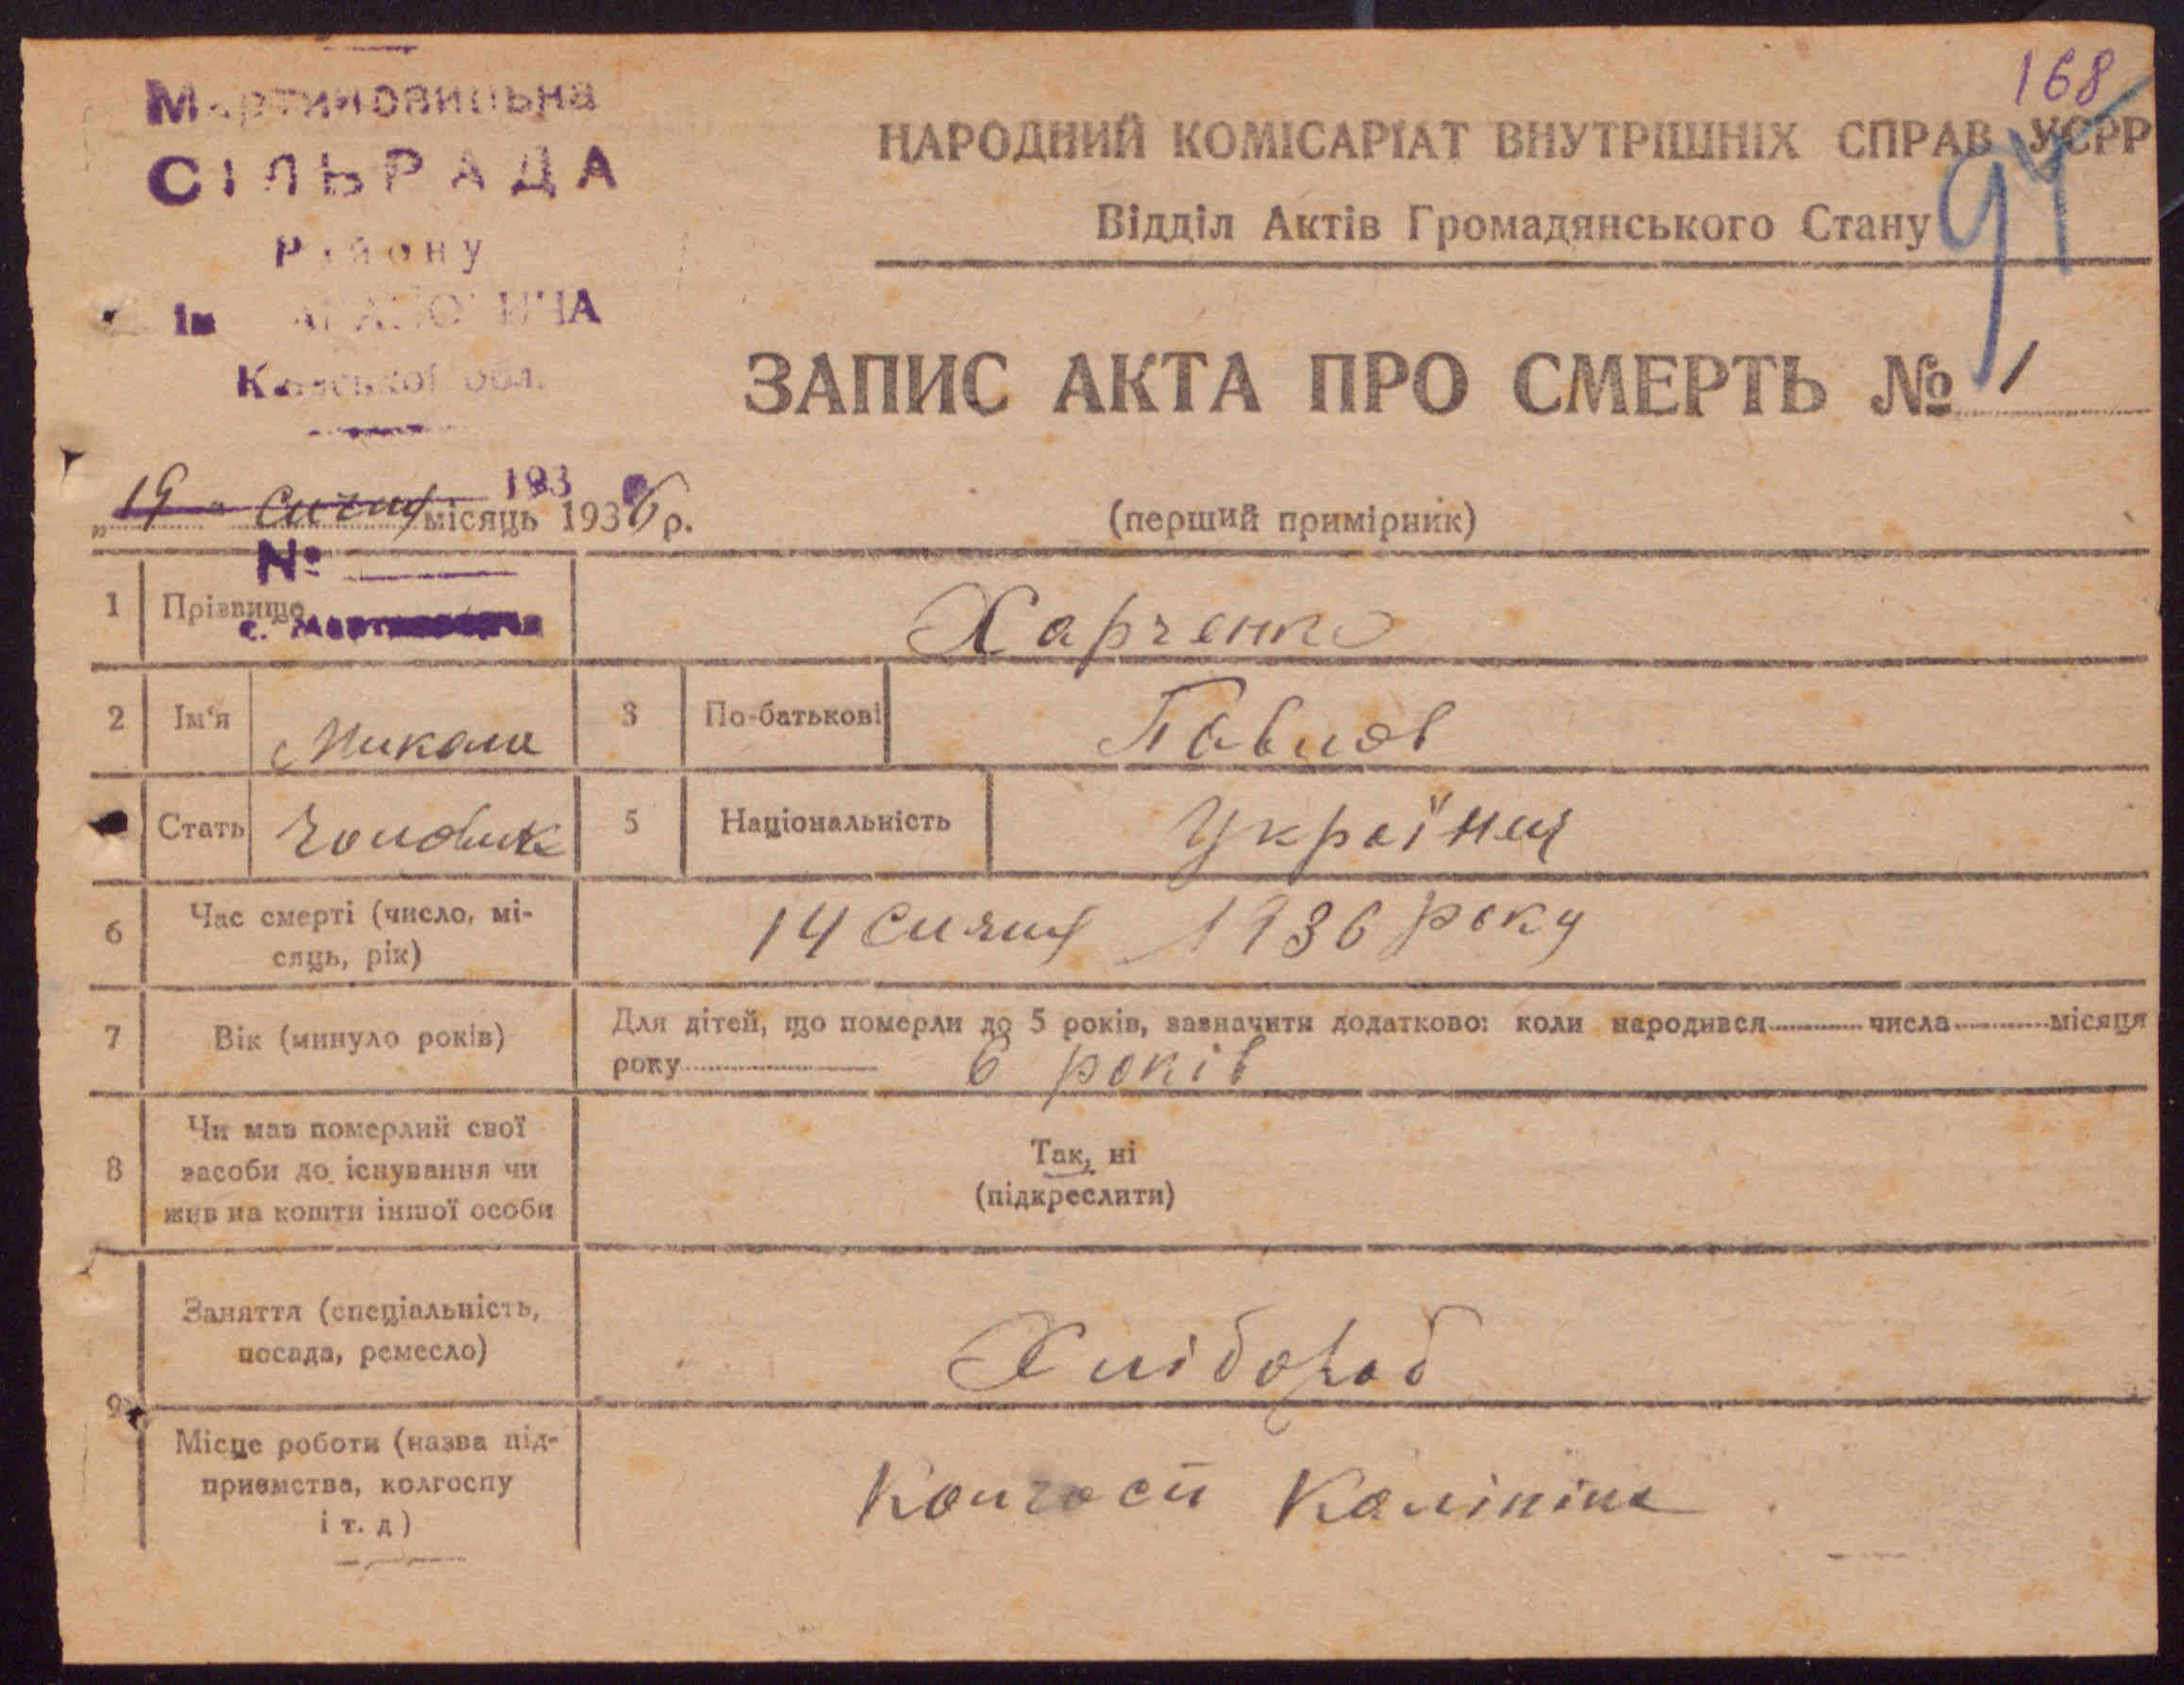 Мартиновицьна
СІЛЬРАДА
Району
ім КАГАНОВИЧА
Київської обл.
168
94
НАРОДНИЙ КОМІСАРІАТ ВНУТРІШНІХ СПРАВ УСРР
Відділ Актів Громадянського Стану
ЗАПИС АКТА ПРО СМЕРТЬ № 1
(перший примірник)
193
„19“ січня місяць 1936 р.
№
1 Прізвище Харченко
с. Мартиновичі
2 Ім‘я Микола 3 По-батькові Павлов
Стать Чоловік 5 Національність Українец
6 Час смерті (число, мі-
сяць, рік) 14 січня 1936 року
7 Вік (минуло років) Для дітей, що померли до 5 років, зазначити додатково: коли народився числа місяця
року 6 років
8 Чи мав померлий свої
засоби до існування чи
жив на кошти іншої особи
Так, ні
(підкреслити)
9 Заняття (спеціальність,
посада, ремесло) Хлібороб
Місце роботи (назва під-
приємства, колгоспу
і т. д) Колгосп Калініна